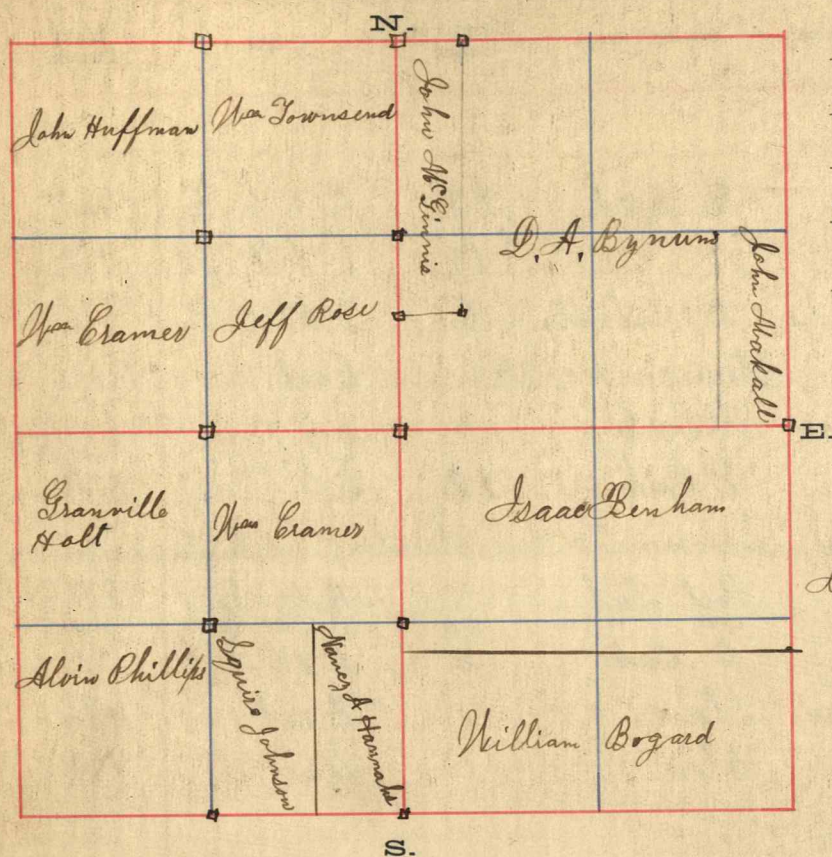 N.
John Huffman
Wm Townsend
John McGinnis
D. A. Bynum
John Makall
Wm Cramer
Jeff Rose
E.
Granville
Holt
Wm Cramer
Isaac Benham
Alvin Phillips
Squire Johnson
Nancy A Hannahs
William Bogard
S.